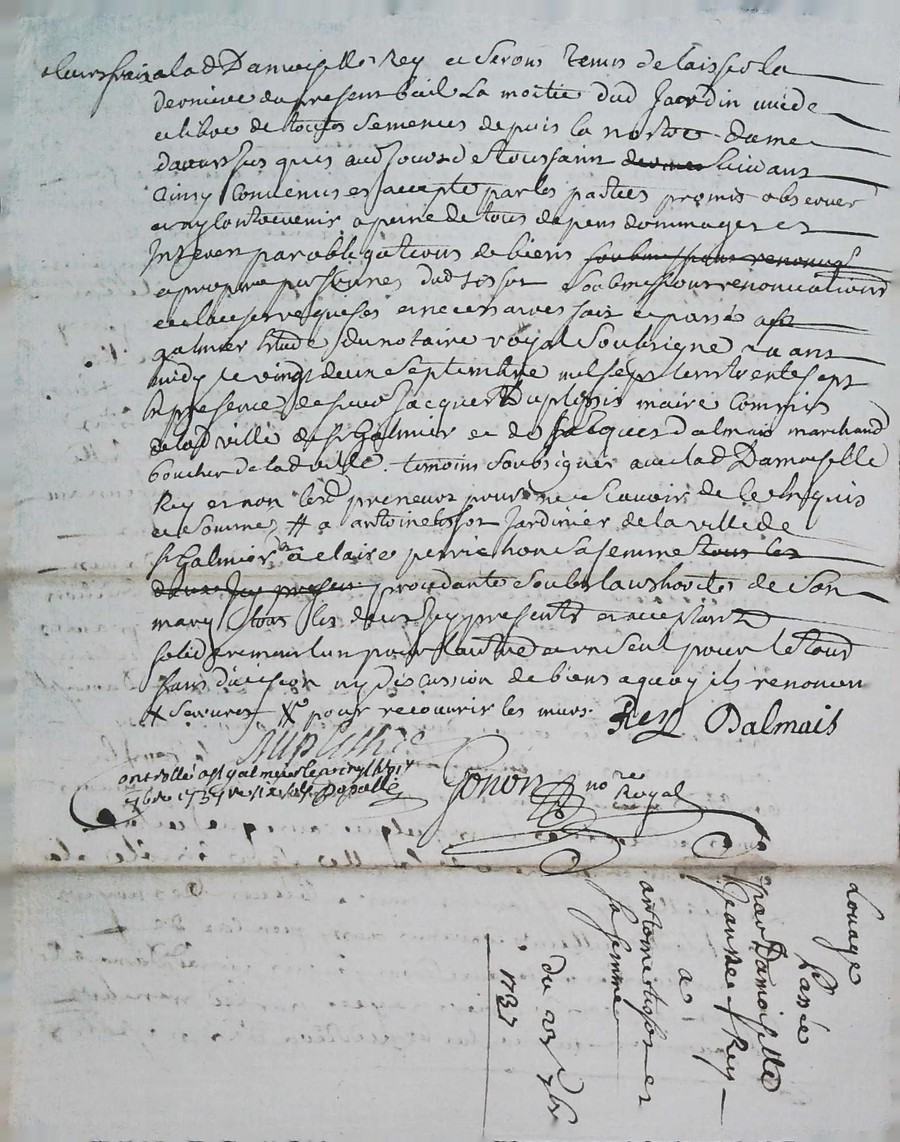 a leurs frais a lad Damoiselle Rey et seront tenus de laisser la
derniere du present bail La moitié dud Jardin vuide
et libre de toutes semences depuis la nostre dame
jusques aud jour de toussaint suivant
Ainsy Convenu et accepté par les parties promis observer
et ny contrevenir a peine de tous depens dommages et
Interets par obligations de biens soubmissions renoncé
et propre personnes dud tissot soubmissions renonciations
et clauses requises et necessaires fait et passé a st
galmier Etude du notaire royal soubsigne avant
midy le vingt deux Septembre mil sept cent trente sept
En presence de sieur Jacques Duplessis maire Commis
de lad ville de st Galmier et de Jacques dalmais marchand
boucher de lad ville temoins soubsignes avec lad Damoiselle
Rey et non lesd preneurs pour ne scavoir de ce Enquis
et sommés # a antoine tissot Jardinier de la ville de
st Galmier & a claire perrichon sa femme tous les
deux Icy presents procedante soubs lauthorité de son
mary tous les deux Icy presents et acceptants
solidairement lun pour lautre et un seul pour le tout
sans division ny discussion de biens a quoy ils renoncent
pour recouvrir les murs. Rey Dalmais
Duplessis
Controllé a st galmier le vingt
7bre 1737
Gonon nore Royal
Louage
Passé
par Damoiselle
Jeanne Rey
a
antoine tissot et
sa femme
du 22 7bre
1737